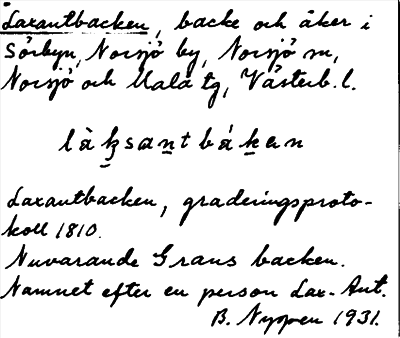 Laxantbacken, backe och åker i
Sörbyn, Norsjö by, Norsjö sn,
Norsjö och Malå tg, Västerb. l.
làksant bákan
Laxantbacken, graderingsproto-
koll 1810.
Nuvarande Grans backen.
Namnet efter en person Lax-Ant.
B. Nyppen 1931.